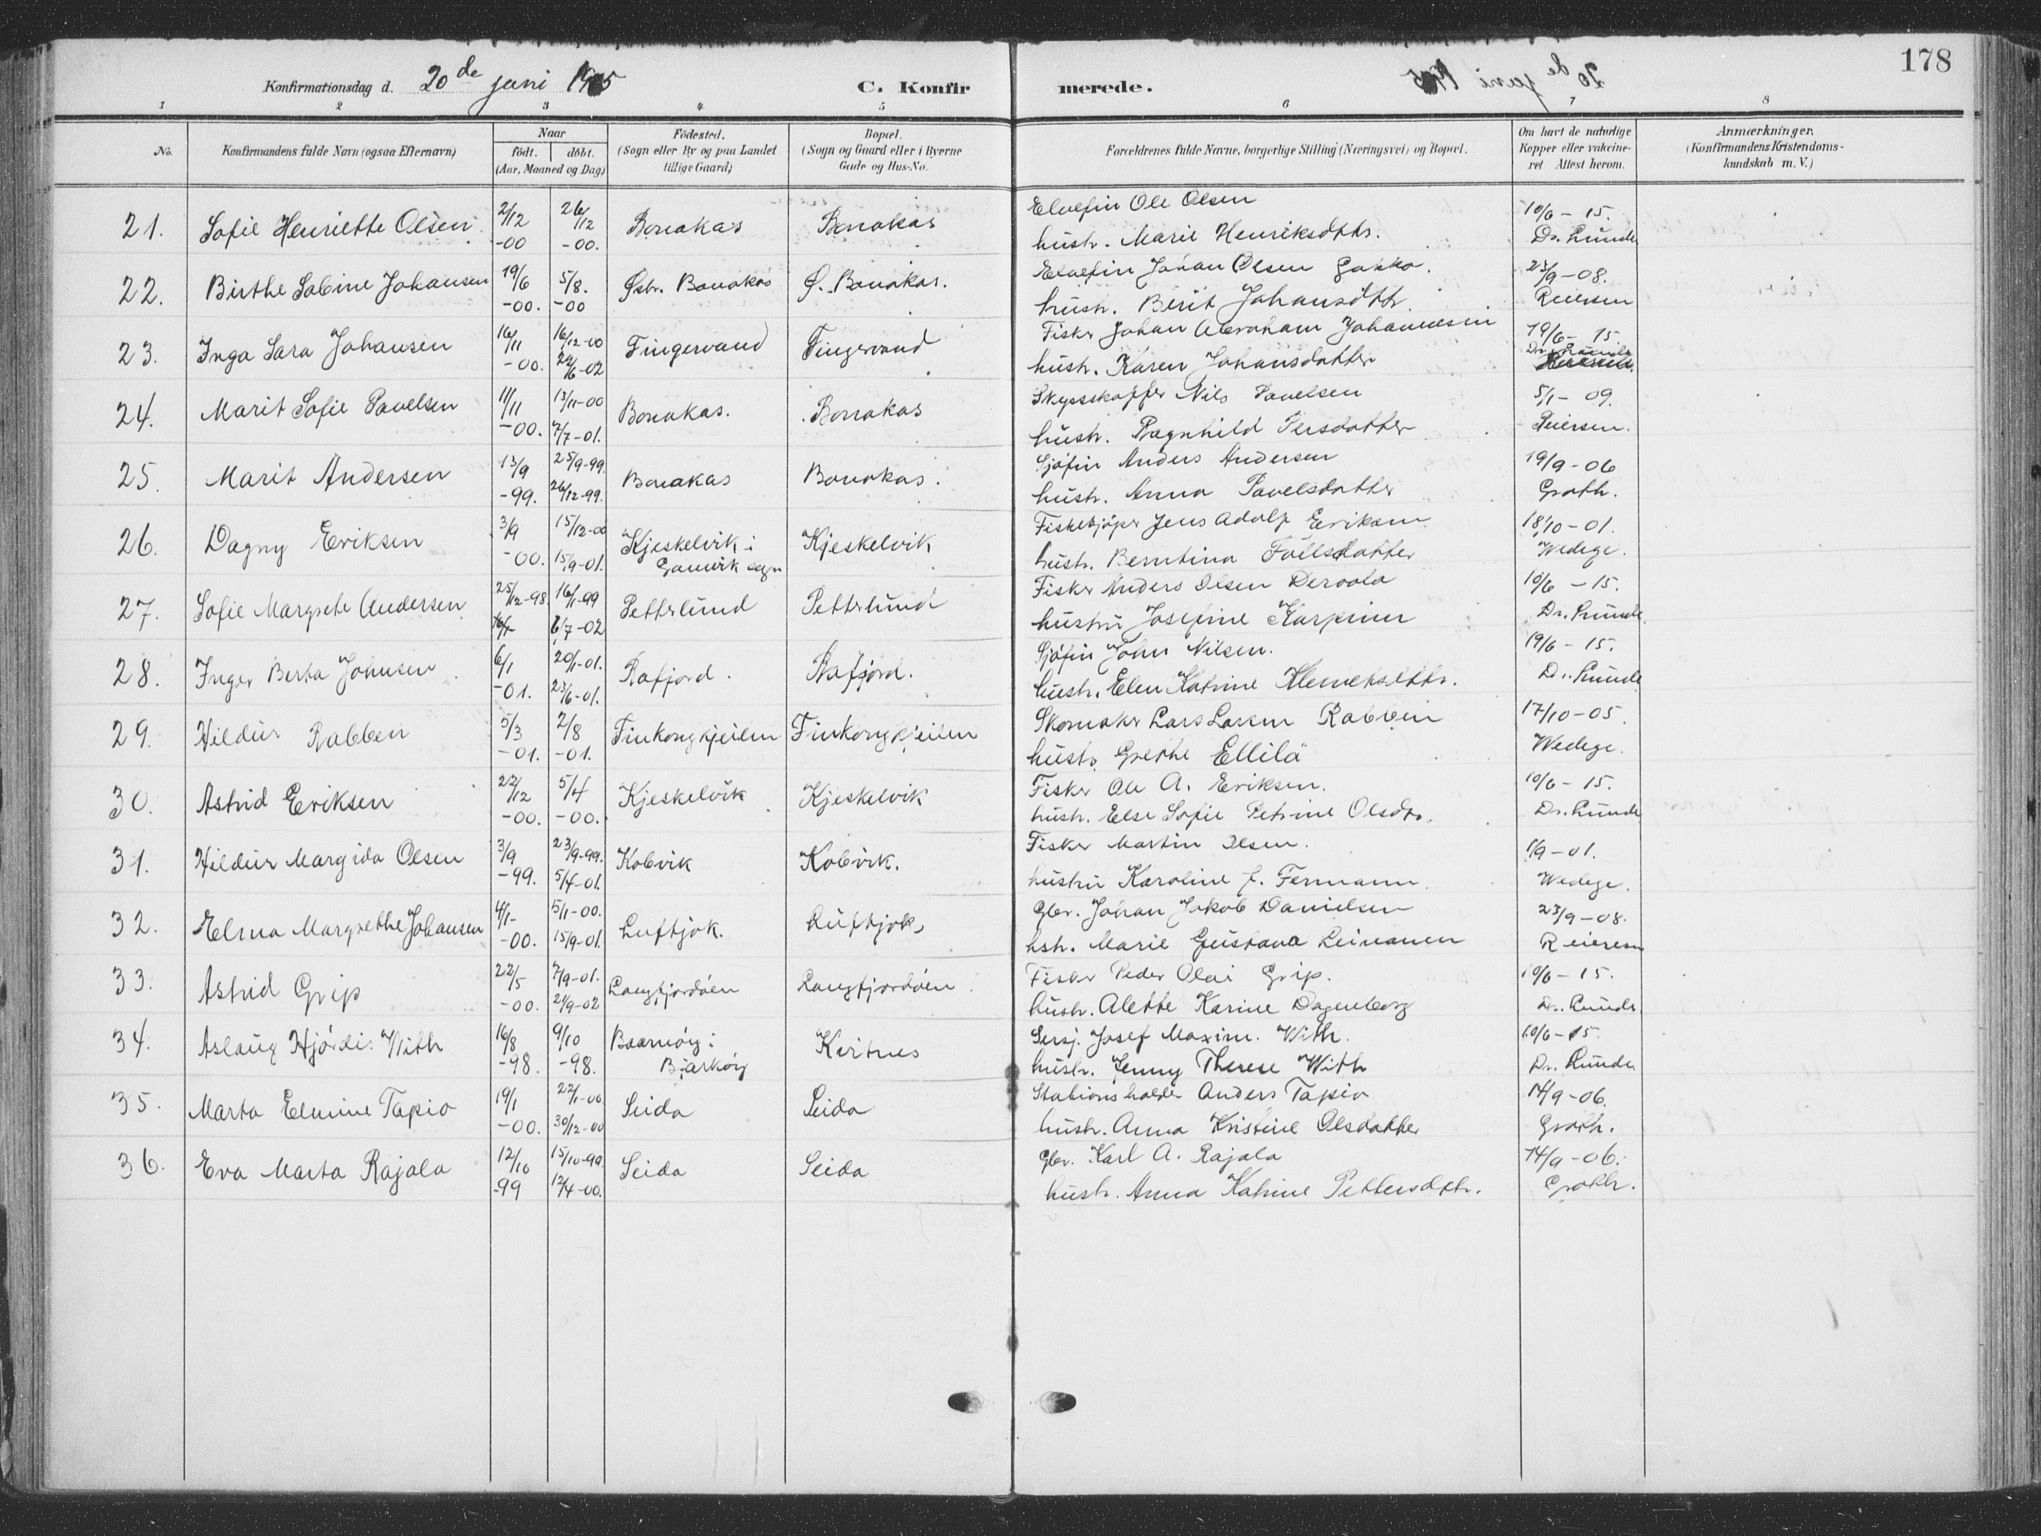 178
Konfirmationsdag d. 20de juni 1915 C. Konfirmerede.
1 2 3 4 5 6 7 8
No. Konfirmandens fulde Navn (ogsaa Efternavn) Naar født. døbt. (Aar, Maaned og Dag) Fødested. (Sogn eller By og paa Landet tillige Gaard) Bopæl. (Sogn og Gaard eller i Byerne Gade og Hus-No. Forældrenes fulde Navne, borgerlige Stilling (Næringsvei) og Bopæl. Om havt de naturlige Kopper eller vaccineret Attest herom. Anmærkninger. (Konfirmandens Kristendomskundskab m. V.)
21. Sofie Henriette Olsen 2/12 -00 26/12 -00. Bonakas Bonakas Elvefin Ole Olsen 10/6 - 15.
hustr. Marie Henriksdttr. Dr. Lunde
22. Birthe Sabine Johansen 19/6 -00. 5/8. -00 Østr. Bonakas Ø. Bonakas. Elvefin Johan Olsen 23/9 -08.
hustr. Berit Johansdttr. Reiersen
23. Inga Sara Johansen 16/11 -00. 16/12 -00 Fingervand Fingervand Fisker Johan Abraham Johannesen 19/6 - 15
hustr. Karen Johansdatter Dr. Lunde
24. Marit Sofie Pavelsen 11/11 -00. 13/11 -00 7/7 -01. Bonakas. Bonakas Skysskaffer Nils Pavelsen 5/1 - 09.
hustr. Ragnhild Persdatter Reiersen.
25. Marit Andersen 13/9 -99. 25/9 -99. 26/12 -99. Bonakas Bonakas. Sjøfin Anders Andersen 19/9 -06
hustr. Anna Pavelsdatter Groth.
26. Dagny Eriksen 3/9 -00. 15/12 -00 15/9 -01. Kjeskelvik i Gamvik sogn Kjeskelvik Fiskekjøper Jens Adolf Eriksen 18/10 -01.
hustr. Berntina Wedege.
27. Sofie Margrete Andersen 25/12 -98. 16/1 -99 6/7 -02 Petterlund Petterlund Fisker Anders Olsen 10/6 - 15.
hustru Josefine Karpinen Dr. Lunde
28. Inger Berta Johnsen 6/1 -01. 20/1 -01. 23/6 -01. Rafjord. Rafjord. Sjøfin John Nilsen. 19/6 - 15.
hustr. Elen Katrine Dr. Lunde
29. Hildur Rabben 5/3 -01. 2/8 -01. Finkongkjeilen Finkongkjeilen Skomaker Lars Larsen Rabben 17/10 -05.
hustr. Grethe Ellilä Wedege.
30. Astrid Eriksen 22/12 -00. 5/4 -00. Kjeskelvik Kjeskelvik Fisker Ole A. Eriksen. 10/6 - 15.
hustr. Else Sofie Petrine Olsdtr. Dr. Lunde
31. Hildur Margida Olsen 3/9 -99. 23/9 -99. 5/4 -01. Kobvik Kobvik. Fisker Martin Olsen. /9 -01.
hustru Karoline J. Fermann. Wedege.
32. Elma Margrethe Johansen 4/1 -00. 5/1 -00. 15/9 -01. Luftjok. Luftjok. Gbr. Johan Jakob Danielsen 23/9 -08.
hstr. Marie Gustava Leinanen Reiersen
33. Astrid Grip 22/5 -00. 7/9 -01. 21/9 -02 Langfjordøen Langfjordøen Fisker Peder Olai Grip. 10/6 - 15.
hustr. Alette Karine Dagenborg Dr. Lunde.
34. Aslaug Hjørdis With 16/8 -98. 9/10 -98. i Bjarkøy Kvitnes Sersj. Josef Maxim. With. 10/6 - 15.
hustr. Jenny Therese With Dr. Lunde.
35. Marta Elmine Tapio 19/1 -00. 22/1 -00. 30/12 -00 Seida Seida Stationsholder Anders Tapio 14/9 -06.
hustr. Anna Kristine Olsdatter Groth.
36. Eva Marta Rajala 12/10 -99 15/10 -99. 12/4 -00. Seida Seida Gbr. Karl A. Rajala 14/9 -06.
hustr. Anna Katrine Pettersdttr. Groth.